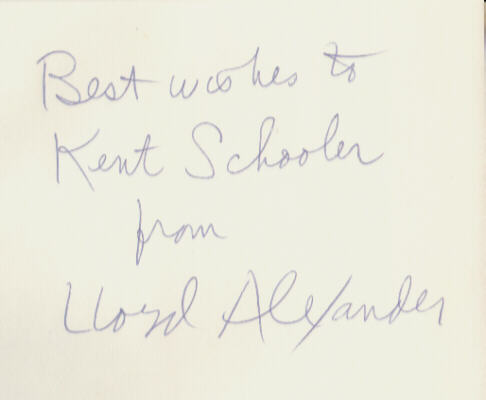 Best wishes to
Kent Schooler
from
Lloyd Alexander